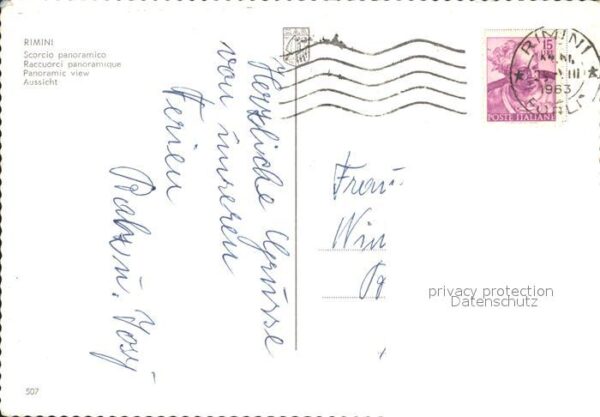 RIMINI
Scorcio panoramico
Raccuorci panoramique
Panoramic view
Aussicht
Herzliche Grüsse
von unseren
Ferien
u. Josy
Frau
Win
privacy protection
Datenschutz
RIMINI
1963
15
POSTE ITALIANE
507